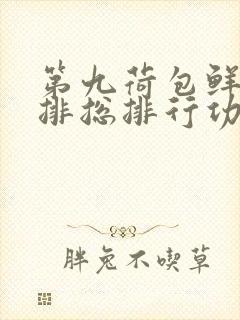 第九荷包鲜
排总排行功
胖兔不喫草